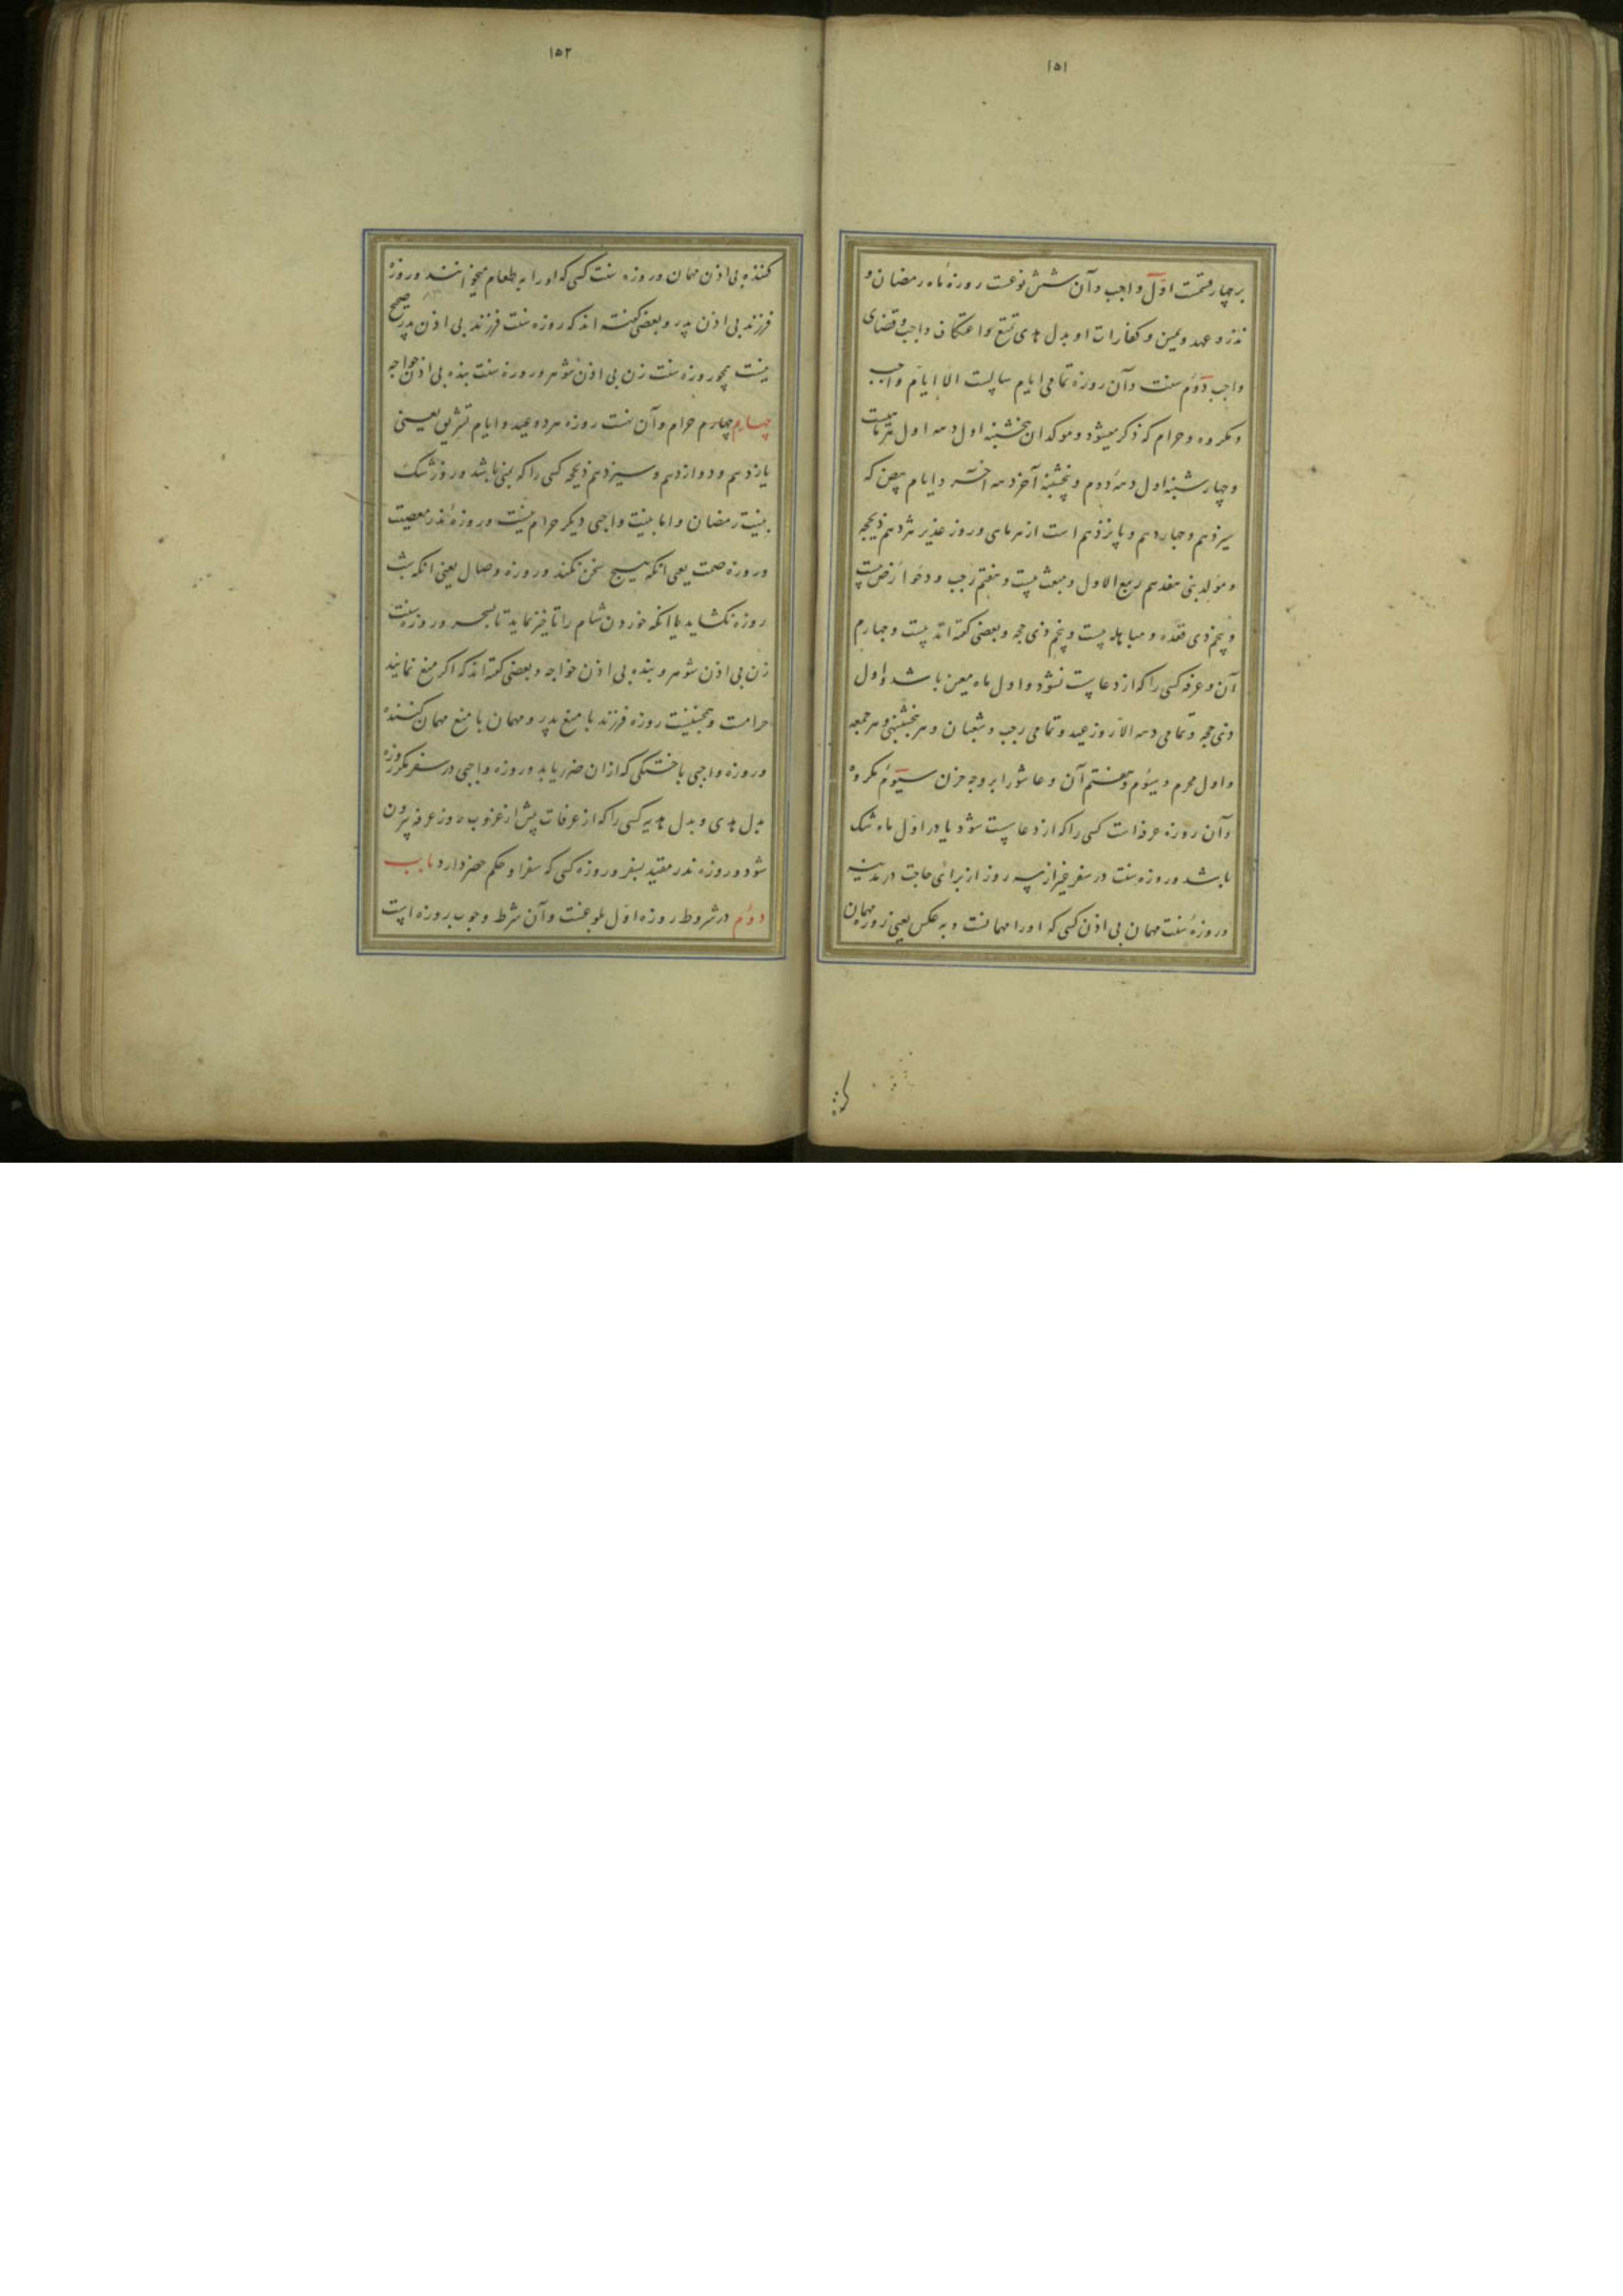 ۱۵۱
بر چهار قسمت اوّل واجب و آن شش نوعست روزهٔ ماه رمضان و
نذر و عهد و یمین و کفارات او بدل هدی تمتع و اعتکاف واجب و قضای
واجب دوّم سنت و آن روزه تمامی ایام سالست الا ایام واجب
و مکروه و حرام که ذکر میشود و موکد آن پنجشنبه اول دهه اول هر ماهیست
و چهارشنبه اول دههٔ دوم و پنجشنبه آخر دهه آخر و ایام بیض که
سیزدهم و چهاردهم و پانزدهم است از هر ماهی و روز غدیر هژدهم ذیحجه
و مولد نبی هفدهم ربیع الاول و مبعث بیست و هفتم رجب و دحو ارض بیست
و پنجم ذی قعده و مباهله بیست و پنجم ذی حجه و بعضی گفته اند بیست و چهارم
آن و عرفه کسی را که از دعا پست نشود و اول ماه معین باشد و اول
ذی حجه و تمامی دهه الا روز عید و تمامی رجب و شعبان و هر پنجشنبه و هر جمعه
و اول محرم و سیوم و هفتم آن و عاشورا بر وجه حزن سیوّم مکروه
و آن روزه عرفه است کسی را که از دعا پست شود یا در اوّل ماه شک
باشد و روزه سنت در سفر غیر از سه روز از برای حاجت در مدینه
و روزهٔ سنت مهمان بی اذن کسی که او را مهمانست و به عکس یعنی روزه مهمان
۱۵۲
کننده بی اذن مهمان و روزه سنت کسی که او را به طعام میخوانند و روزه
فرزند بی اذن پدر و بعضی گفته اند که روزه سنت فرزند بی اذن پدر صحیح
نیست همچو روزه سنت زن بی اذن شوهر و روزه سنت بنده بی اذن خواجه
چهارم چهارم حرام و آن نهست روزه هر دو عید و ایام تشریق یعنی
یازدهم و دوازدهم و سیزدهم ذیحجه کسی را که بمنی باشد و روز شک
بنیت رمضان و اما بنیت واجبی دیگر حرام نیست و روزهٔ نذر معصیت
و روزه صمت یعنی انکه هیچ سخن نکند و روزه وصال یعنی انکه شب
روزه نکشاید یا انکه خوردن شام را تاخیر نماید تا بسحر و روزه سنت
زن بی اذن شوهر و بنده بی اذن خواجه و بعضی گفته اند که اکر منع نمایند
حرامست و همچنینست روزه فرزند با منع پدر و مهمان با منع مهمان کننده
و روزه واجبی با خستکی که از ان ضرر یابد و روزه واجبی در سفر مکر روزه
بدل هدی و بدل بدنه کسی را که از عرفات پیش از غروب روز عرفه بیرون
شود و روزه نذر مقید بسفر و روزه کسی که سفر او حکم حضر دارد باب
دوّم در شروط روزه اوّل بلوغست و آن شرط وجوب روزه است